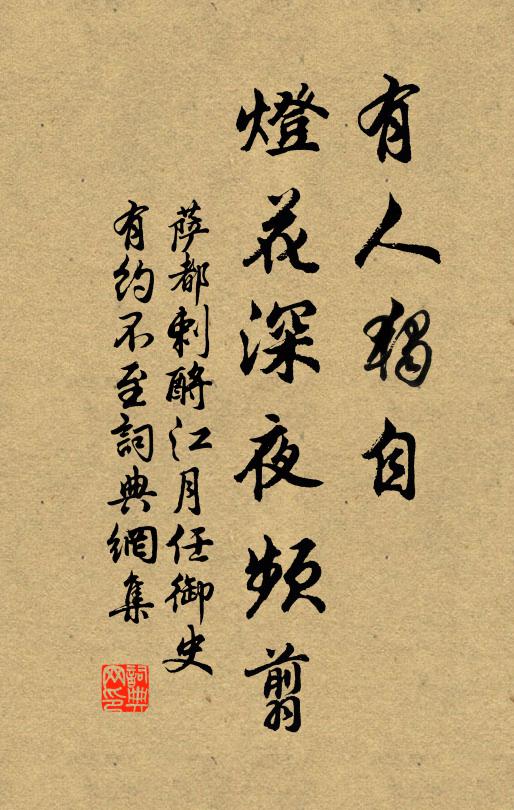 有人獨自
燈花深夜頻翦
薩都剌酹江月任御史
有約不至詞典網集
詞典網印